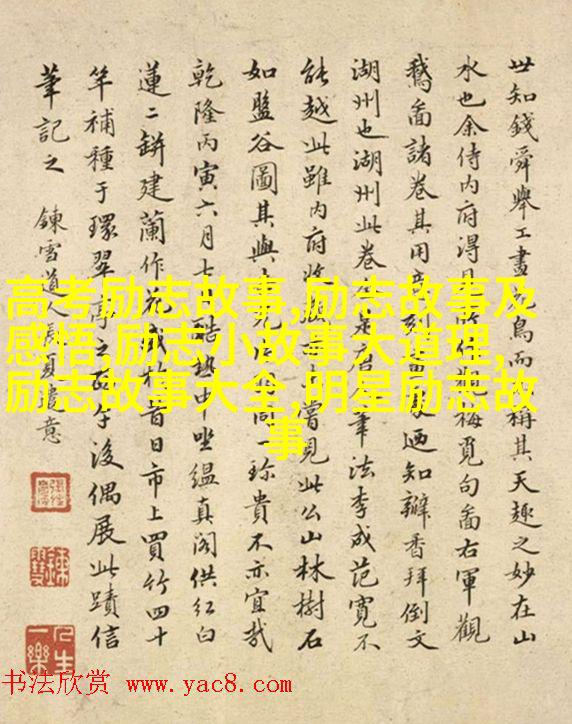 世知錢舜舉工畫花鳥而稱其天趣之妙在山
水也余侍內府得觀梅覓句畫右軍觀
鵝畫諸卷其用到迺知辦香拜倒文
湖州也湖州此卷是唐筆法李成范寬不
能越此雖內府收曾見此公山林樹石
如盤谷圖其與同一珍貴不亦宜哉
乾隆丙寅六月七酷熱中坐緼真閣供紅白
蓮二缾建蘭作花我於首日市上買竹四十
竿補種于環翠亭之後偶展此蹟信
筆記之 鍊雪道人張意
高考励志故事,励志故事及
感悟,励志小故事大道理,
励志故事大全,明星励志故
事
人生一樂
书法欣赏 www.yac8.com